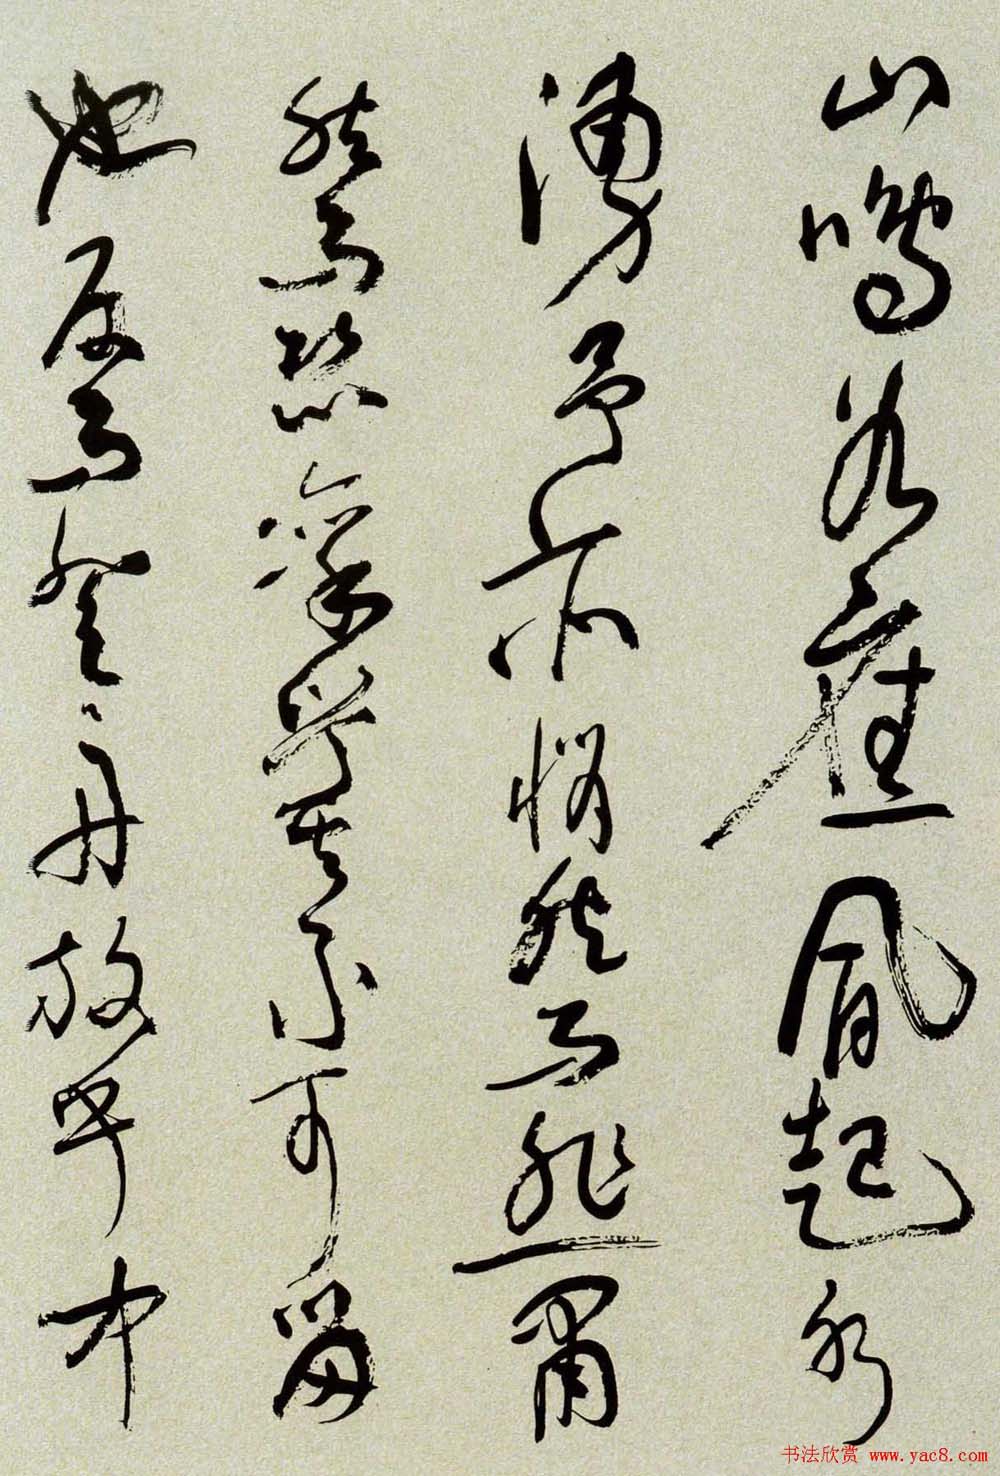 山鳴谷應風起水
湧予亦悄然而悲肅
然而恐凜乎其不可留
也反而登舟放乎中
书法欣赏 www.yac8.com